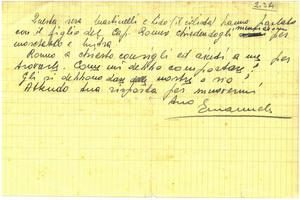 2.24
Questa sera Martinelli e Lido (il ciclista) hanno parlato
con il figlio del Cap. Romro chiedendogli munizioni per
moschetto e
Romro a chiesto consigli ed aiuti a me per
trovarli. Come mi debbo comportare?
Gli si debbono dare nostri o no?
Attendo tua risposta per muovermi
tuo Emanuele